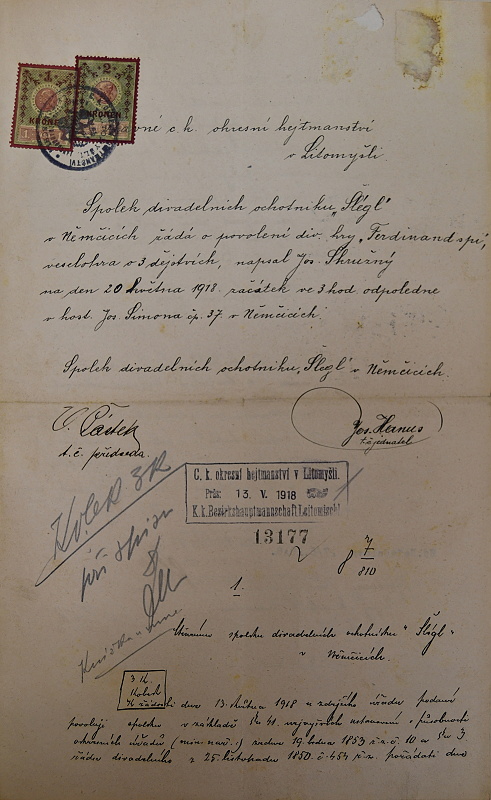 1 2
KRONE KRONEN
c. k. okresní hejtmanství
v Litomyšli.
Spolek divadelních ochotníku „Šlégl"
v Němčicích žádá o povolení div. hry „Ferdinand spí",
veselohra o 3 dějstvích, napsal Jos. Skružný
na den 20 května 1918. začátek ve 3 hod. odpoledne
v host. Jos. Šimona čp. 37 v Němčicích.
Spolek divadelních ochotníku „Šlegl" v Němčicích.
t. č. předseda. jednatel
Kolek 3K
při
C. k. okresní hejtmanství v Litomyšli.
13. V. 1918
K. k. Bezirkshauptmannschaft Leitomischl
13177
8 7/810
1.
spolku divadelních ochotníku "Šlégl"
v Němčicích.
3 K.
Kolek
K žádosti dne 13. května 1918 u zdejšího úřadu podané
povoluji spolku v základě
úřadů 19. ledna 1853 ř. z. č. 10 a 3
řádu divadelního z 25. listopadu 1850. č. 454 ř. z. pořádati dne